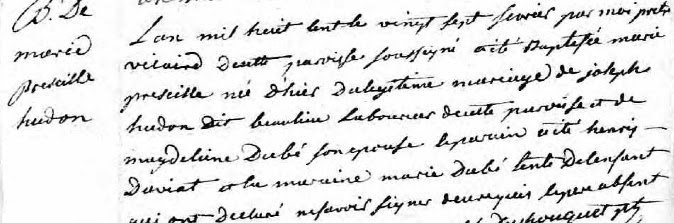 B. De
marie
preseille
hudon
L'an mil huit cent le vingt sept fevrier par moi pretre
vicaire de cette paroisse soussigné a été Baptisée marie
preseille né d'hier du legitime mariage de joseph
hudon dit beaulieu Laboureur de cette paroisse et de
magdeleine Dubé son epouse le parain a été henry
Daviat et la maraine marie Dubé tente de lenfant
qui ont declaré ne savoir signer de ce requis le pere absent